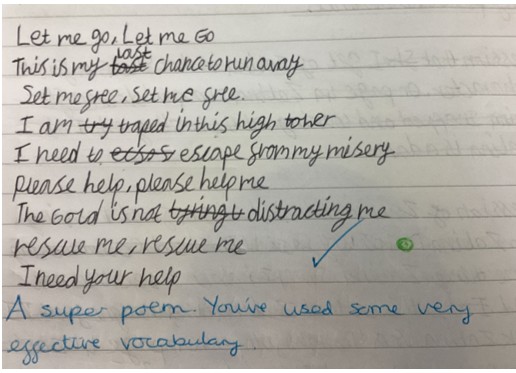 Let me go, Let me Go
This is my last chance to run away
Set me free, Set me free.
I am try traped in this high tower
I need to escape from my misery
please help, please help me
The Gold is not distracting me
rescue me, rescue me
I need your help
A super poem. You've used some very
effective vocabulary.